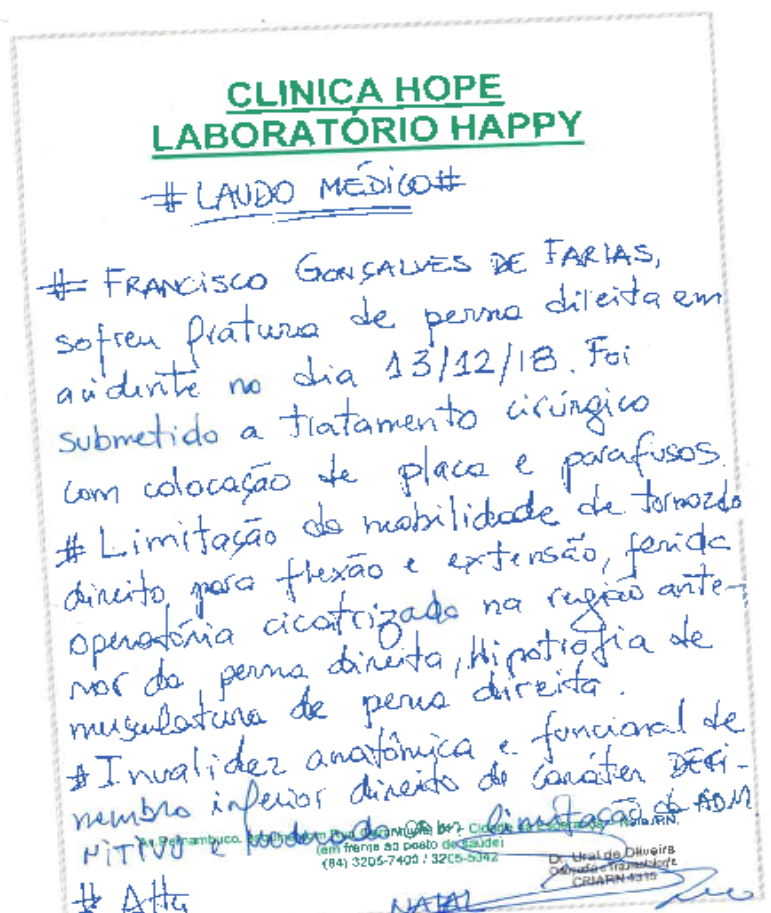 CLINICA HOPE
LABORATÓRIO HAPPY
# LAUDO MÉDICO #
# FRANCISCO GONÇALVES DE FARIAS,
sofreu fratura de perna direita em
acidente no dia 13/12/18. Foi
submetido a tratamento cirúrgico
com colocação de placa e parafusos.
# Limitação da mobilidade de tornozelo
direito para flexão e extensão, ferida
operatória cicatrizada na região ante-
rior da perna direita, Hipotrofia de
musculatura de perna direita.
# Invalidez anatômica e funcional de
membro inferior direito de caráter DEFI-
NITIVO e Moderado limitação da ADM
Av. Pernambuco, Cidade da Esperança - Natal/RN.
(em frente ao posto de saúde)
(84) 3205-7403 / 3205-5342
Dr. Ural de Oliveira
Ortopedia e Traumatologia
# Att
NATAL